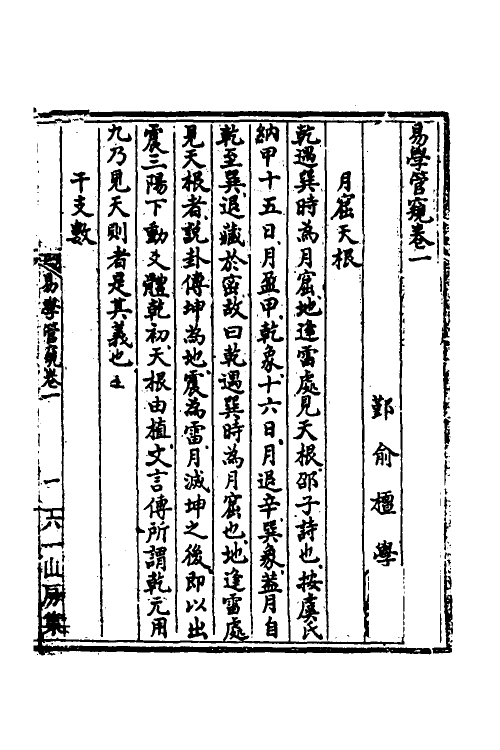 易學管窺卷一
鄞俞檀學
月窟天根
乾遇巽時為月窟地逢雷處見天根邵子詩也按虞氏
納甲十五日月盈甲乾象十六日月退辛巽象蓋月自
乾至巽退藏於窟故曰乾遇巽時為月窟也地逢雷處
見天根者說卦傳坤為地震為雷月滅坤之後即以出
震三陽下動爻體乾初天根由植文言傳所謂乾元用
九乃見天則者是其義也
干支數
易學管窺卷一
一
六一山房集